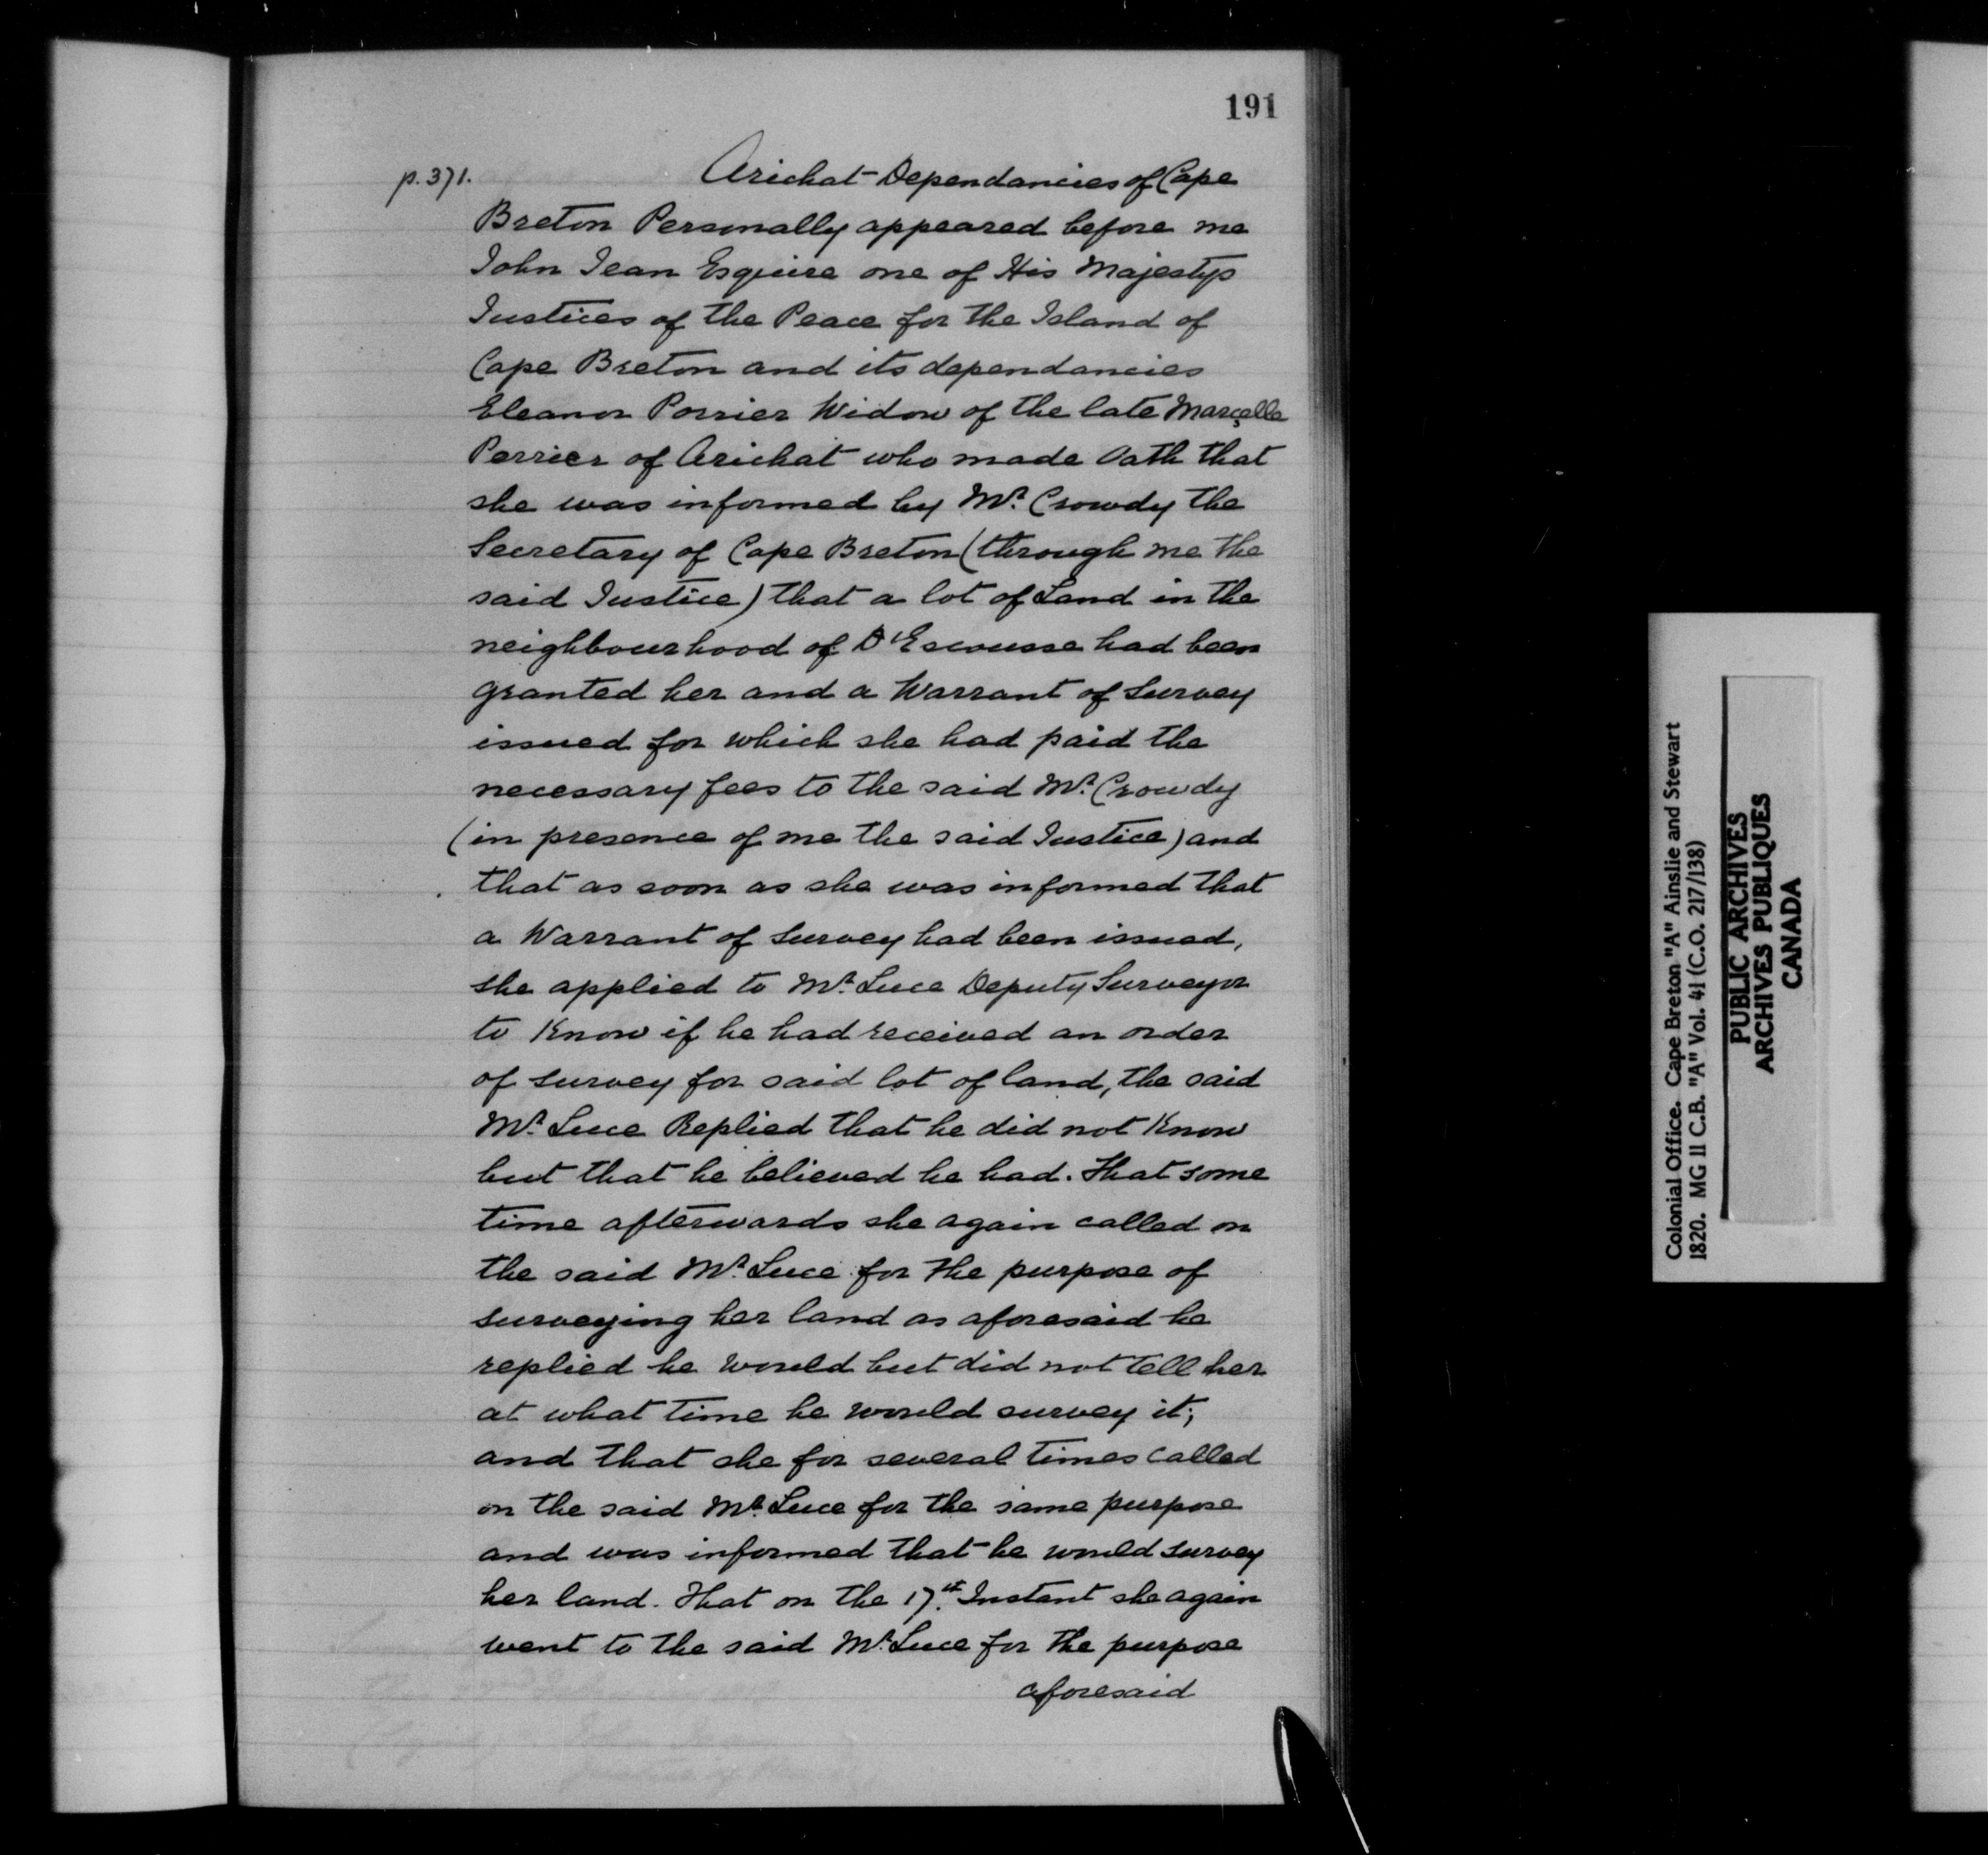 191
p. 371.
Arichat - Dependancies of Cape
Breton Personally appeared before me
John Jean Esquire one of His Majestys
Justices of the Peace for the Island of
Cape Breton and its dependancies
Eleanor Porrier Widow of the late Marçelle
Perrier of Arichat who made Oath that
she was informed by Mr. Crowdy the
Secretary of Cape Breton (through me the
said Justice) that a lot of Land in the
neighbourhood of D'Escousse had been
granted her and a Warrant of Survey
issued for which she had paid the
necessary fees to the said Mr. Crowdy
(in presence of me the said Justice) and
that as soon as she was informed that
a Warrant of Survey had been issued,
she applied to Mr. Luce Deputy Surveyor
to Know if he had received an order
of survey for said lot of land, the said
Mr. Luce Replied that he did not Know
but that he believed he had. That some
time afterwards she again called on
the said Mr. Luce for the purpose of
surveying her land as aforesaid he
replied he would but did not tell her
at what time he would survey it;
and that she for several times called
on the said Mr. Luce for the same purpose
and was informed that he would survey
her land. That on the 17th. Instant she again
went to the said Mr. Luce for the purpose
aforesaid
Colonial Office. Cape Breton "A" Ainslie and Stewart
1820. MG 11 C.B. "A" Vol. 41 (C.O. 217/138)
PUBLIC ARCHIVES
ARCHIVES PUBLIQUES
CANADA